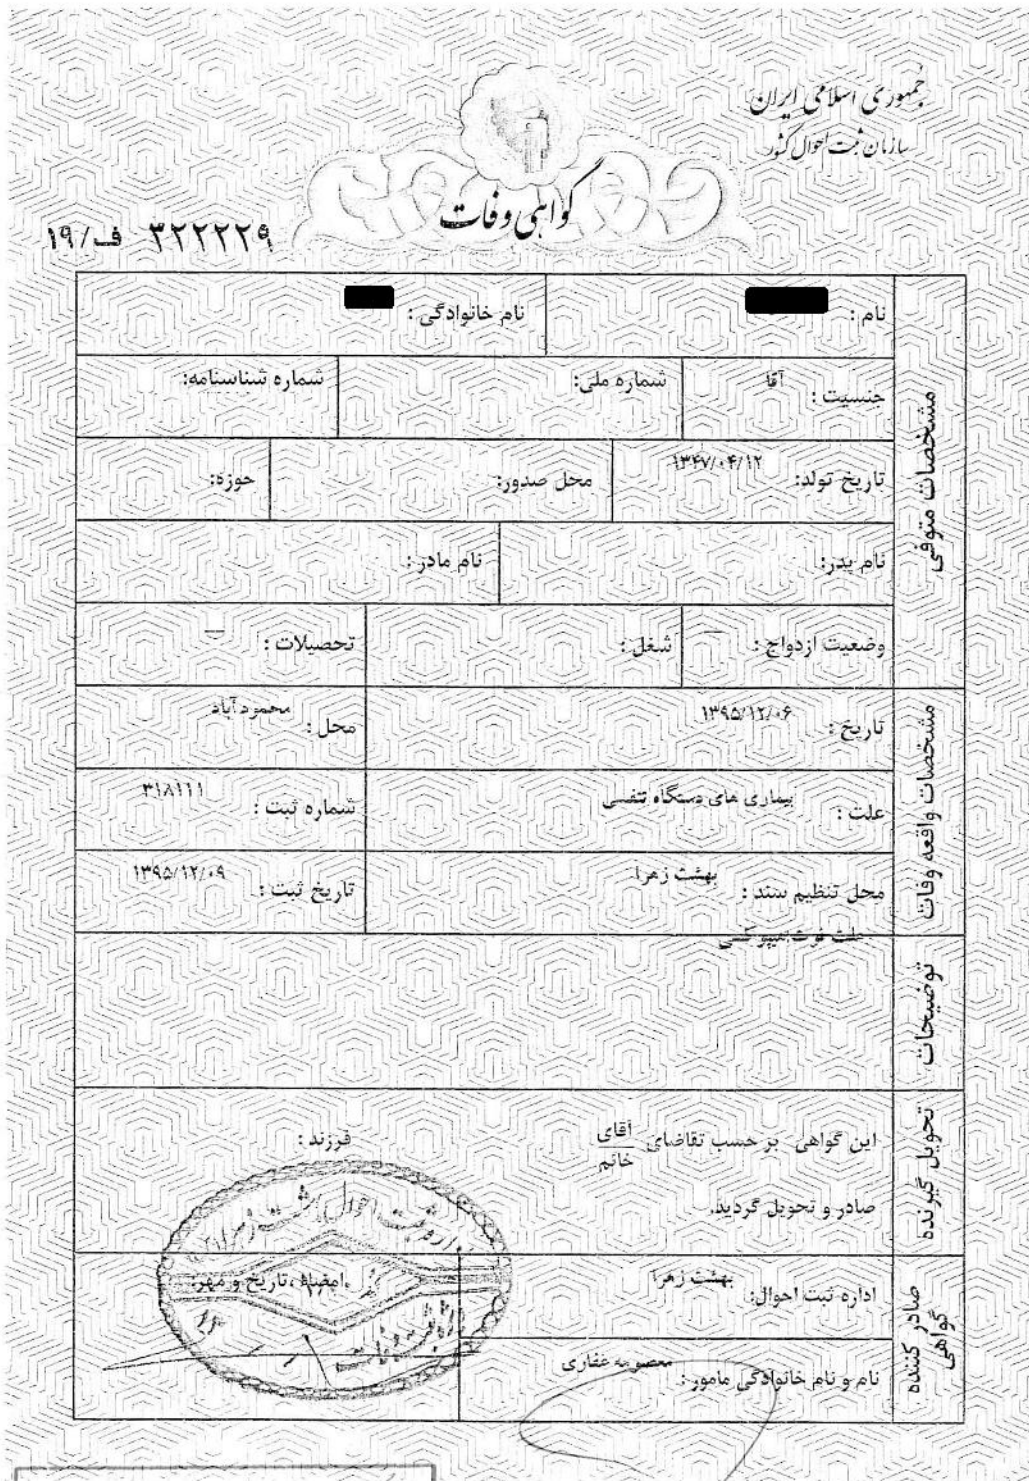 جمهوری اسلامی ایران
سازمان ثبت احوال کشور
گواهی وفات
۳۲۲۲۲۹ ف/۱۹
مشخصات متوفی
نام : نام خانوادگی :
جنسیت : آقا شماره ملی: شماره شناسنامه:
تاریخ تولد: ۱۳۴۷/۰۴/۱۲ محل صدور: حوزه:
نام پدر: نام مادر :
وضعیت ازدواج : — شغل : تحصیلات : —
مشخصات واقعه وفات
تاریخ : ۱۳۹۵/۱۲/۰۶ محل : محمودآباد
علت : بیماری های دستگاه تنفسی شماره ثبت : ۳۱۸۱۱۱
محل تنظیم سند : بهشت زهرا تاریخ ثبت : ۱۳۹۵/۱۲/۰۹
توضیحات
علت فوت:هیپوکسی
تحویل گیرنده
این گواهی بر حسب تقاضای آقای خانم فرزند :
صادر و تحویل گردید.
صادر کننده گواهی
اداره ثبت احوال: بهشت زهرا امضاء ،تاریخ و مهر:
نام و نام خانوادگی مامور : معصومه غفاری